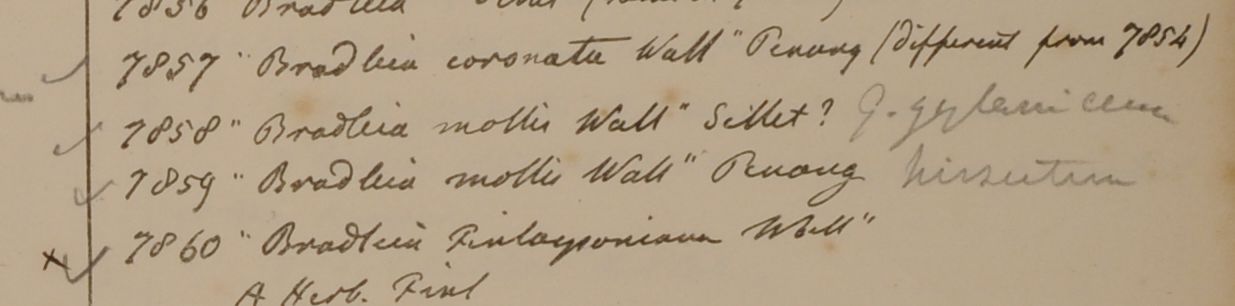 7856 Bradleia
7857 " Bradleia coronata Wall " Penang (different from 7854)
7858 " Bradleia mollis Wall " Sillet? G. zeylanicum
7859 " Bradleia mollis Wall " Penang hirsutum
7860 " Bradleia Finlaysoniana Wall "
A Herb. Finl